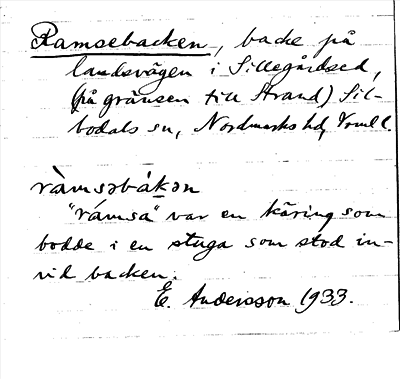 Ramsebacken, backe på
landsvägen i Sillegårdsed,
(på gränsen till Strand) Sil-
bodals sn, Nordmarks hd, Vrml l.
ràmsəbákən
"rámsa" var en käring som
bodde i en stuga som stod in-
vid backen.
E. Andersson 1933.